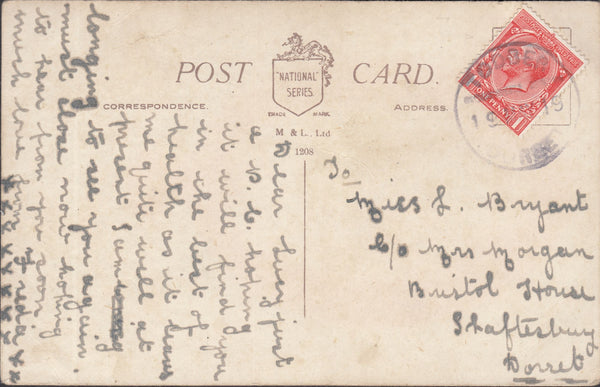 POST CARD.
"NATIONAL"
SERIES.
TRADE MARK.
CORRESPONDENCE.
ADDRESS.
M & L., Ltd
1208
ONE PENNY
1
19
19
Dear Lucy just
a P.C. hoping
it will find you
in the best of
health as it leaves
me quite well at
present I am
longing to see you again.
must close now hoping
to hear from you soon
much love from Freda
x x x x x x x x x x
To
Miss L. Bryant
C/o Mrs Morgan
Bristol House
Shaftesbury
Dorset